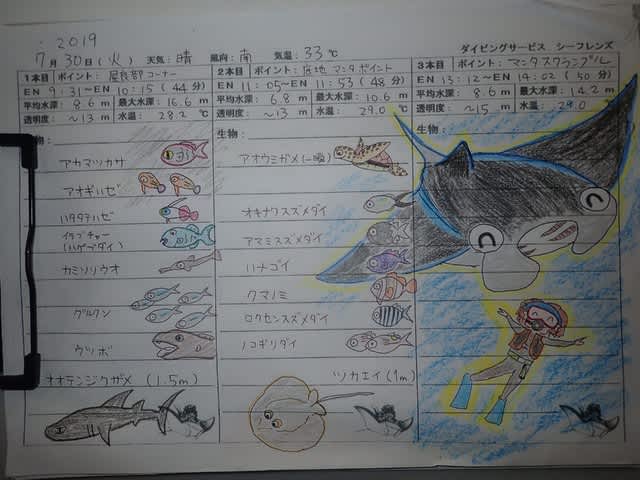 2019
7月30日(火) 天気: 晴 風向: 南 気温: 33℃ ダイビングサービス シーフレンズ
1本目 ポイント: 屋良部コーナー
EN 9:31〜EN 10:15 (44分)
平均水深: 8.6 m 最大水深: 16.6 m
透明度: 〜13 m 水温: 28.2 ℃
生物:
アカマツカサ
アオギハゼ
ハタタテハゼ
イラブチャー
(ハゲブダイ)
カミソリウオ
グルクン
ウツボ
オオテンジクザメ (1.5m)
2本目 ポイント: 底地 マンタポイント
EN 11:05〜EN 11:53 (48分)
平均水深: 6.8 m 最大水深: 10.6 m
透明度: 〜13 m 水温: 29.0 ℃
生物:
アオウミガメ(一瞬)
オキナワスズメダイ
アマミスズメダイ
ハナゴイ
クマノミ
ロクセンスズメダイ
ノコギリダイ
ツカエイ(1m)
3本目 ポイント: マンタスクランブル
EN 13:12〜EN 14:02 (50分)
平均水深: 8.6 m 最大水深: 14.2 m
透明度: 〜15 m 水温: 29.0 ℃
生物: